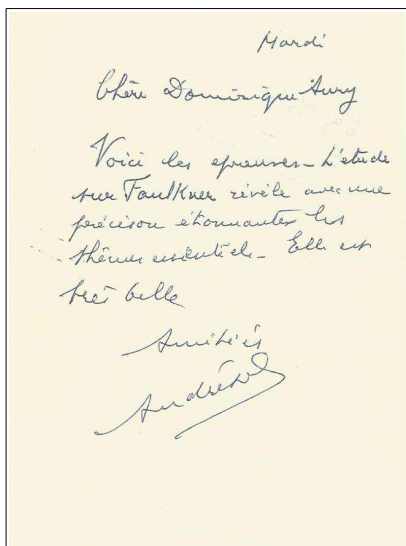 Mardi
Chère Dominique Aury
Voici les epreuves - L'étude
sur Faulkner révèle avec une
précison étonnantes les
thèmes essentiels - Elle est
très belle
Amitiés